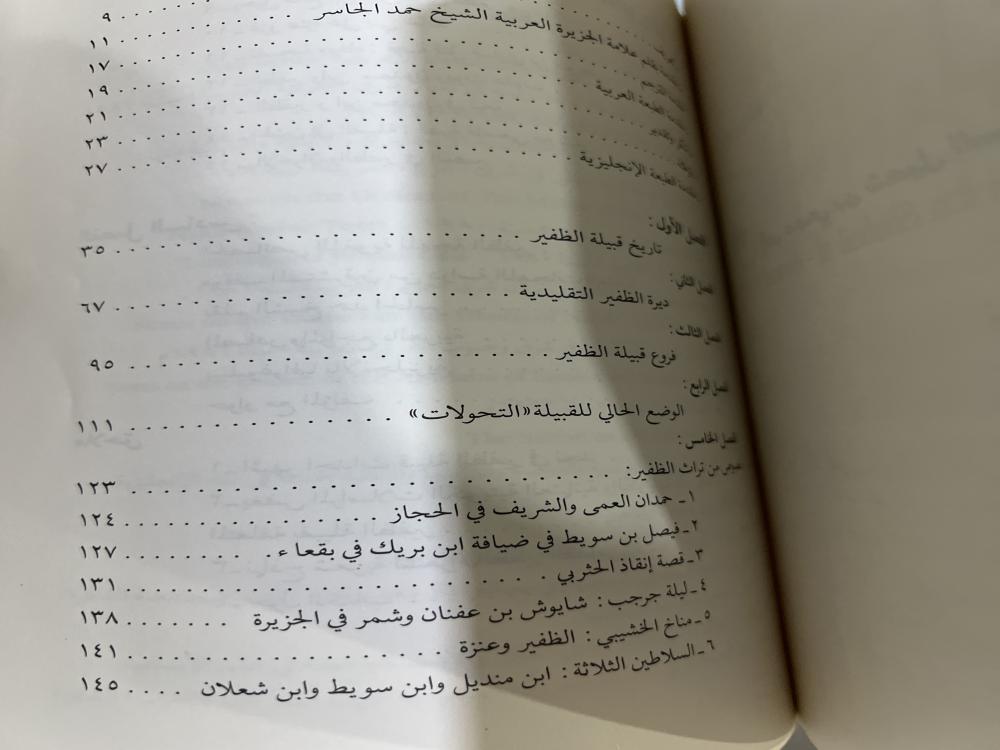 ٩
بقلم علامة الجزيرة العربية الشيخ حمد الجاسر . . . . . . ١١
المترجم . . . . . . ١٧
الطبعة العربية . . . . . . ١٩
وتقدير . . . . . . ٢١
٢٣
الطبعة الإنجليزية . . . . . . ٢٧
الفصل الأول :
تاريخ قبيلة الظفير . . . . . . ٣٥
الفصل الثاني :
ديرة الظفير التقليدية . . . . . . ٦٧
الفصل الثالث :
فروع قبيلة الظفير . . . . . . ٩٥
الفصل الرابع :
الوضع الحالي للقبيلة «التحولات» . . . . . . ١١١
الفصل الخامس :
نصوص من تراث الظفير: . . . . . . ١٢٣
١ ـ حمدان العمى والشريف في الحجاز . . . . . . ١٢٤
٢ ـ فيصل بن سويط في ضيافة ابن بريك في بقعاء . . . . . . ١٢٧
٣ ـ قصة إنقاذ الحثربي . . . . . . ١٣١
٤ ـ ليلة جرجب : شايوش بن عفنان وشمر في الجزيرة . . . . . . ١٣٨
٥ ـ مناخ الخشيبي : الظفير وعنزة . . . . . . ١٤١
٦ ـ السلاطين الثلاثة : ابن منديل وابن سويط وابن شعلان . . . . ١٤٥